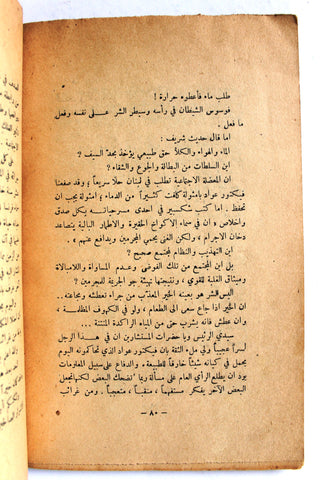 طلب ماء فأعطوه حرارة !
فوسوس الشيطان في رأسه وسيطر الشر على نفسه وفعل
ما فعل .
اما قال حديث شريف :
الماء والهواء والكلأ حق طبيعي يؤخذ بحد السيف ؟
اين السلطات من البطالة والجوع والشقاء ؟
ان المعضلة الاجتماعية تطلب في لبنان حلا سريعاً ، وقد صفعنا
فيكتور عواد بامثولة كلفت كثيراً من الدماء ، امثولة يجب ان
تحفظ . اما كتب شكسبير في احدى مسرحياته بكل صدق
واخلاص ان في سماء الاكواخ الحقيرة والاطمار البالية يتصاعد
دخان الاجرام ، ولكن الغنى يحمي المجرمين ويدافع عنهم .
اين التهذيب والنظام لمجتمع صحيح ؟
بل اين المجتمع من تلك الفوضى وعدم المساواة واللامبالاة
وميثاق الغلبة للقوي ، ونتيجتها نسبة جو الجريمة للمجرمين ؟
أليس الشر هو بعينه الخير المعذب من جراء تعطشه ومجاعته .
ان الخير اذا جاع سعى الى الطعام ، ولو في الكهوف المظلمة ،
وان عطش فانه يشرب حتى من المياه الراكدة المنتنة ...
سيدي الرئيس ويا حضرات المستشارين ان في هذا الرجل
لسراً عجيباً ولي ملء الثقة بان فيكتور عواد الذي تحاكمونه اليوم
يحمل في كيانه شيئاً خارقاً للطبيعة ، والدفاع على سبيل المعلومات
يود ان يطلع الرأي العام على مسألة ربما تضحك البعض لكنها تجعل
البعض الآخر يفكر مستفهماً ، منقباً ، متعجباً . ومن غرائب
— ٨٠ —